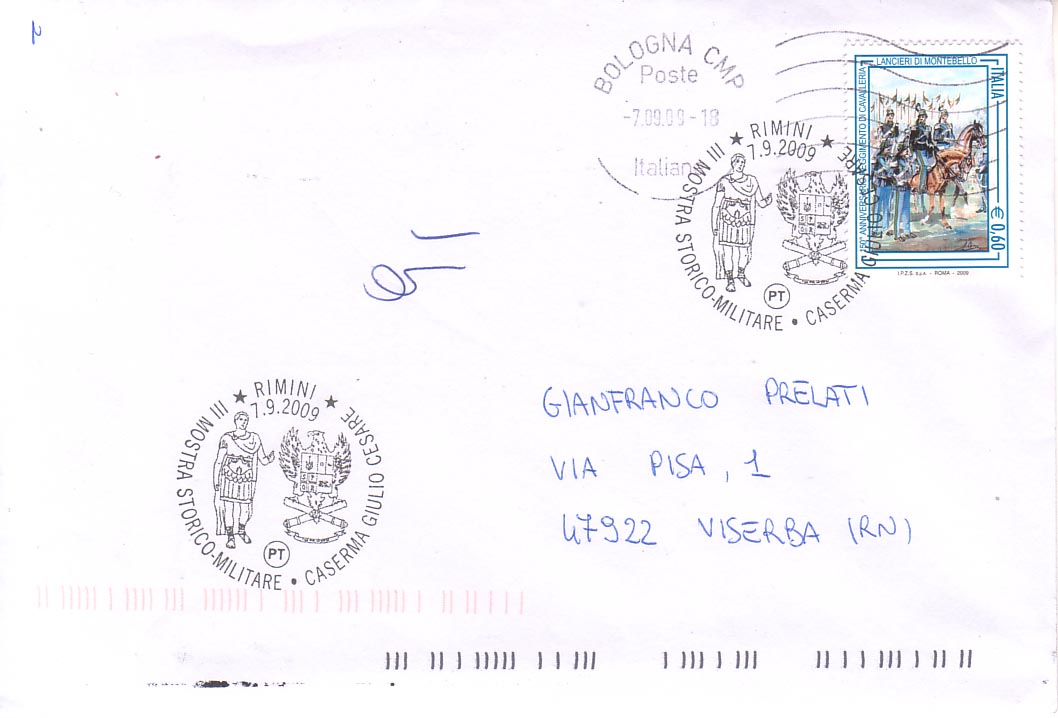 2
BOLOGNA CMP
Poste
-7.09.09-18
Italian
LANCIERI DI MONTEBELLO
ITALIA
€ 0,60
I.P.Z.S. S.p.A. - ROMA - 2009
★ RIMINI ★
7.9.2009
III MOSTRA STORICO-MILITARE • CASERMA GIULIO CESARE
PT
GIANFRANCO PRELATI
VIA PISA, 1
47922 VISERBA (RN)
★ RIMINI ★
7.9.2009
III MOSTRA STORICO-MILITARE • CASERMA GIULIO CESARE
PT